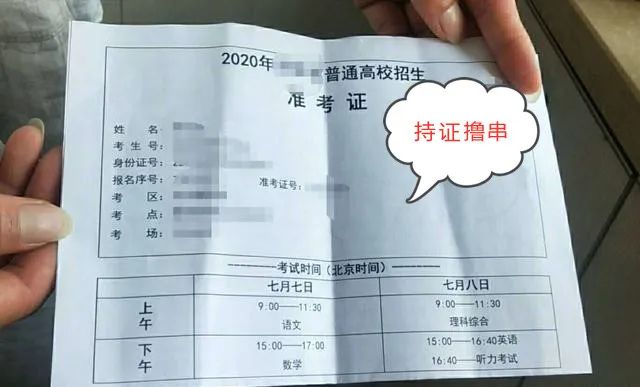 2020年 普通高校招生
准考证
持证撸串
姓 名
考生号:
身份证号:
报名序号:
准考证号:
考 区
考 点
考 场
--------考试时间（北京时间）--------
七月七日 七月八日
上午 9:00——11:30 9:00——11:30
语文 理科综合
下午 15:00——17:00 15:00——16:40英语
数学 16:40——听力考试